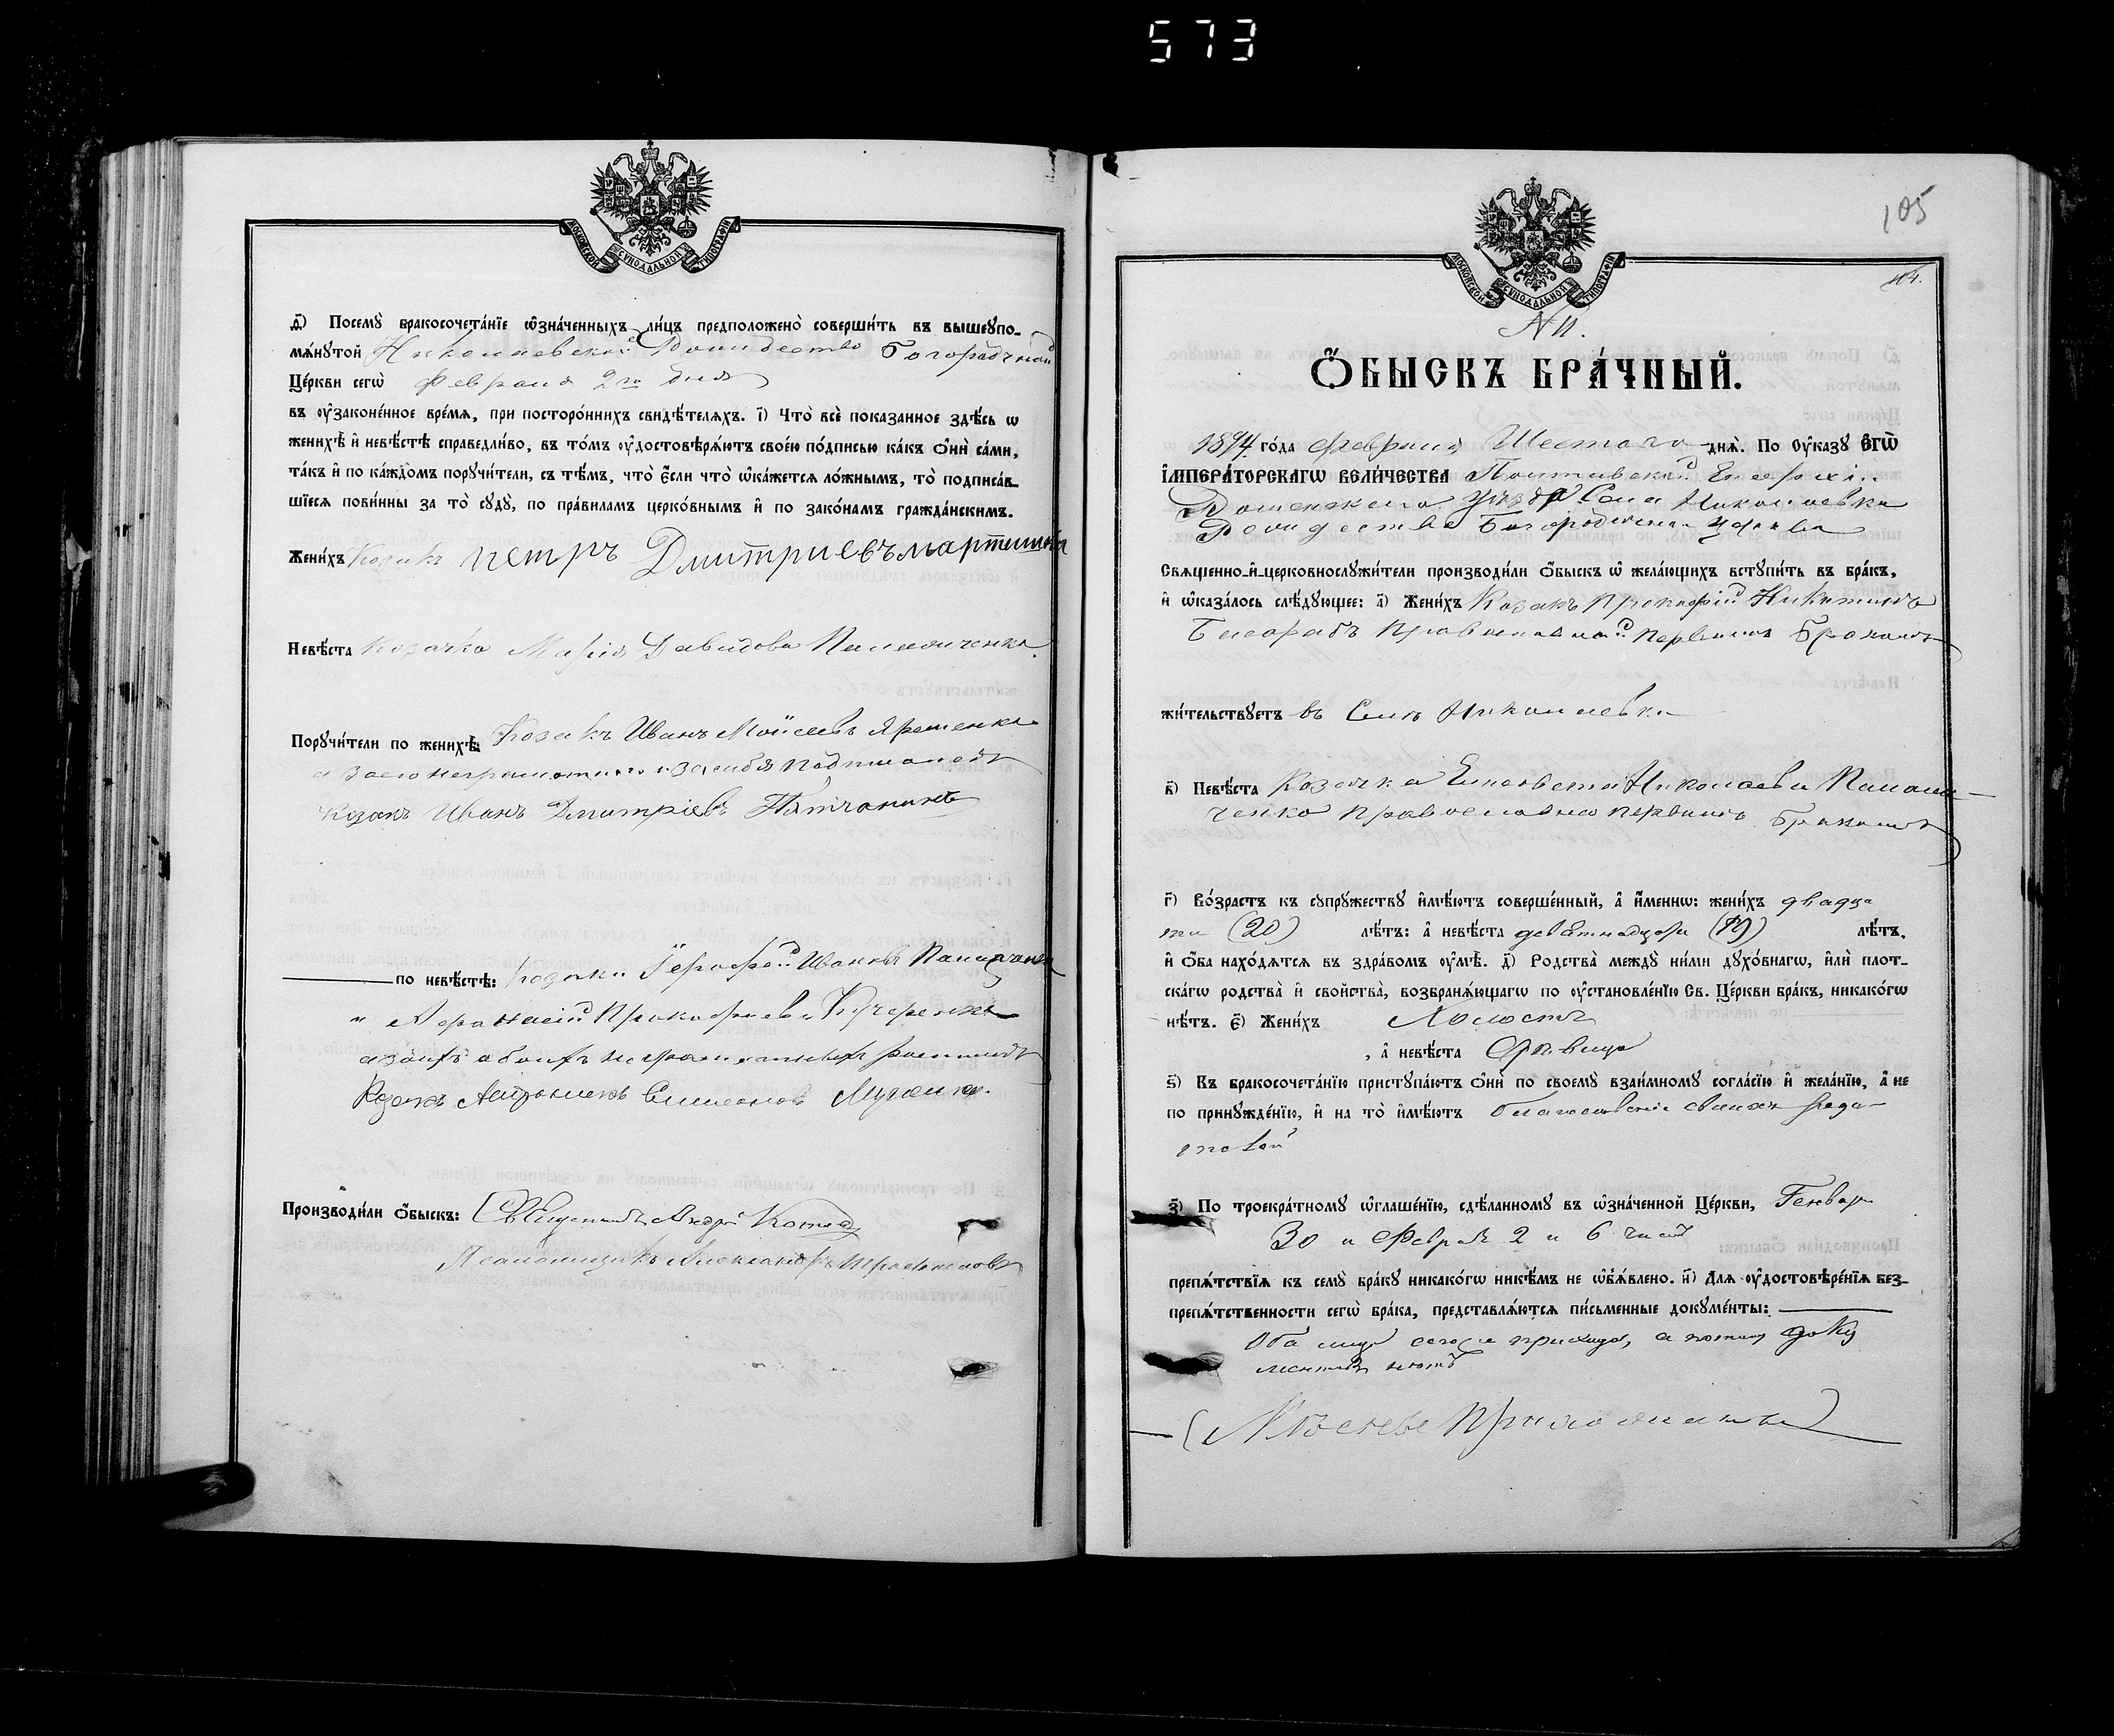 573
МОСКОВСКОЙ СѴНОДАЛЬНОЙ ТИПОГРАФІИ
ѳ҃) Посемꙋ̀ бракосочета́нїе ѡ҆зна́ченныхъ ли́цъ предположено̀ соверши́ть въ вышеꙋпо-
мѧ́нꙋтой Николаевской Рождество Богородичной
Це́ркви сегѡ̀ Февраля 2го дня
въ ᲂу҆зако́ненное вре́мѧ, при посторо́ннихъ свидѣ́телѧхъ. і҃) Что̀ всѐ показанное здѣ́сь ѡ
женихѣ̀ и҆ невѣ́стѣ справедли́во, въ то́мъ ᲂу҆достовѣрѧ́ютъ свое́ю по́дписью ка́къ ѻ҆нѝ са́ми,
та́къ и҆ по ка́ждомъ порꙋчи́тели, съ тѣ́мъ, что̀ є҆́сли что̀ ѡ҆ка́жетсѧ ло́жнымъ, то̀ подписа́в-
шїесѧ пови́нны за то̀ сꙋдꙋ̀, по пра́виламъ церко́внымъ и҆ по зако́намъ гражда́нскимъ.
Жени́хъ Козакъ Петръ Дмитриевъ
Невѣ́ста Козачка Марія Давидова
Порꙋчи́тели по женихѣ̀: Козакъ Иванъ Моисеевъ Ярешенко
а за его неграмотного и за себя подписался
козакъ Иванъ Дмитріевъ
по невѣ́стѣ: козаки Иванъ
и Афанасій Прокофиевъ Кучеренко
а за нихъ обоихъ неграмотныхъ росписался
Козакъ Симеоновъ
Производи́ли ѻ҆́быскъ: Священникъ Андрей
Псаломщикъ Александръ
МОСКОВСКОЙ СѴНОДАЛЬНОЙ ТИПОГРАФІИ
105
104.
N 11.
Ѻ҆БЫСКЪ БРА́ЧНЫЙ.
1894 го́да Февраля Шестого днѧ̀. По ᲂу҆ка́зꙋ Є҆ГѠ̀
І҆МПЕРА́ТОРСКАГѠ ВЕЛИ́ЧЕСТВА Полтавской Епархіи
Роменскаго уѣзда Села Николаевки
Рождество Богородичной Церкви
Свѧщенно-и҆-церковнослꙋжи́тели производи́ли ѻ҆́быскъ ѡ҆ жела́ющихъ встꙋпи́ть въ бра́къ,
и҆ ѡ҆каза́лось слѣ́дꙋющее: а҃) Жени́хъ Козакъ Прокофій Никитинъ
православный первымъ бракомъ
жи́тельствꙋетъ въ Селѣ Николаевки
в҃) Невѣ́ста Козачка Елисавета Николаева
православна первымъ бракомъ
г҃) Во́зрастъ къ сꙋпрꙋ́жествꙋ и҆мѣ́ютъ соверше́нный, а҆ и҆́менно: жени́хъ двадца
ти (20) лѣ́тъ: а҆ невѣ́ста девятнадцати (19) лѣ́тъ,
и҆ ѻ҆́ба нахо́дѧтсѧ въ здра́вомъ ᲂу҆мѣ̀. д҃) Родства̀ междꙋ ни́ми дꙋхо́внагѡ, и҆лѝ плот-
ска́гѡ родства̀ и҆ свойства̀, возбранѧ́ющагѡ по ᲂу҆становле́нїю Св. Це́ркви бра́къ, никако́гѡ
нѣ́тъ. є҃) Жени́хъ Холостъ
, а҆ невѣ́ста дѣвица
ѕ҃) Къ бракосочета́нїю пристꙋпа́ютъ ѻ҆нѝ по своемꙋ̀ взаи́мномꙋ согла́сїю и҆ жела́нїю, а҆ не
по принꙋжде́нїю, и҆ на то̀ и҆мѣ́ютъ благословеніе своихъ роди-
телей
з҃) По троекра́тномꙋ ѡ҆глаше́нїю, сдѣ́ланномꙋ въ ѡ҆зна́ченной Це́ркви, Генваря
30 и Февраля 2 и 6 чиселъ
препѧ́тствїѧ къ семꙋ̀ бра́кꙋ никако́гѡ никѣ́мъ не ѡ҆б̾ѧ́влено. и҃) Длѧ ᲂу҆достовѣре́нїѧ без-
препѧ́тственности сегѡ̀ бра́ка, представлѧ́ютсѧ пи́сьменные докꙋме́нты:
Оба лица сего же прихода, а потому доку
ментовъ нѣтъ